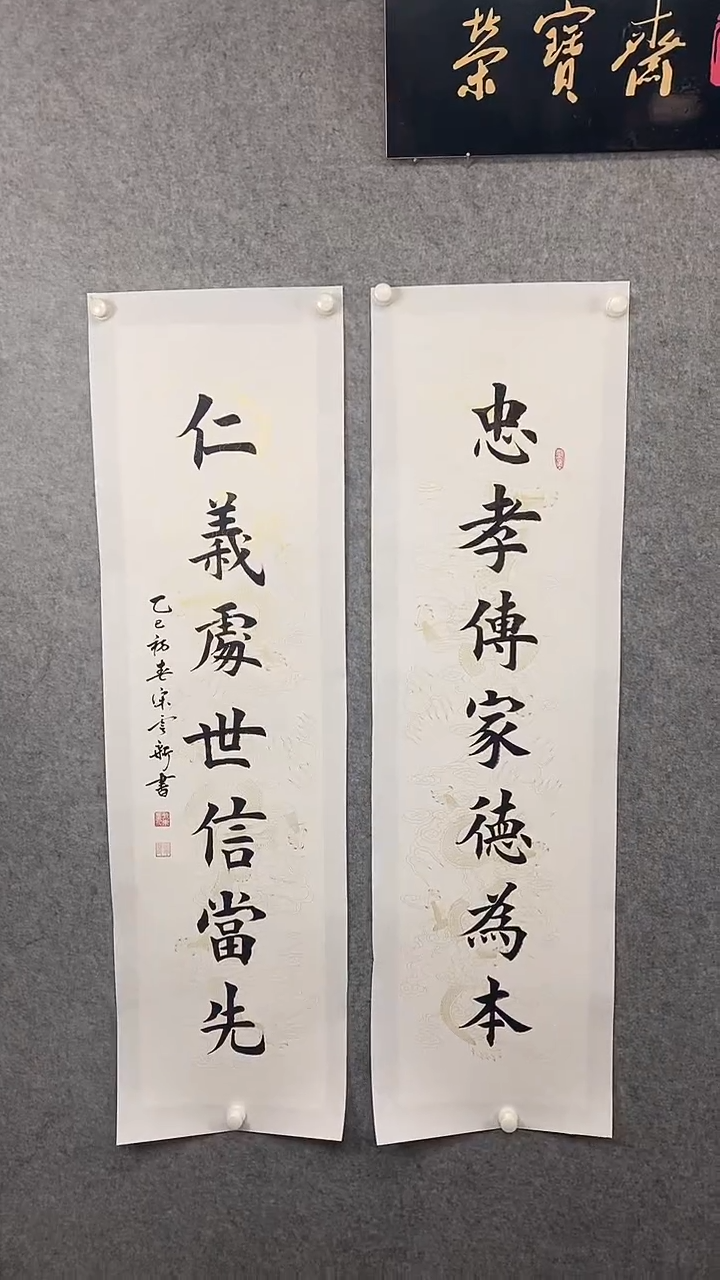 榮寶齋
忠孝傳家德為本
仁義處世信當先
乙巳初春宋雲新書